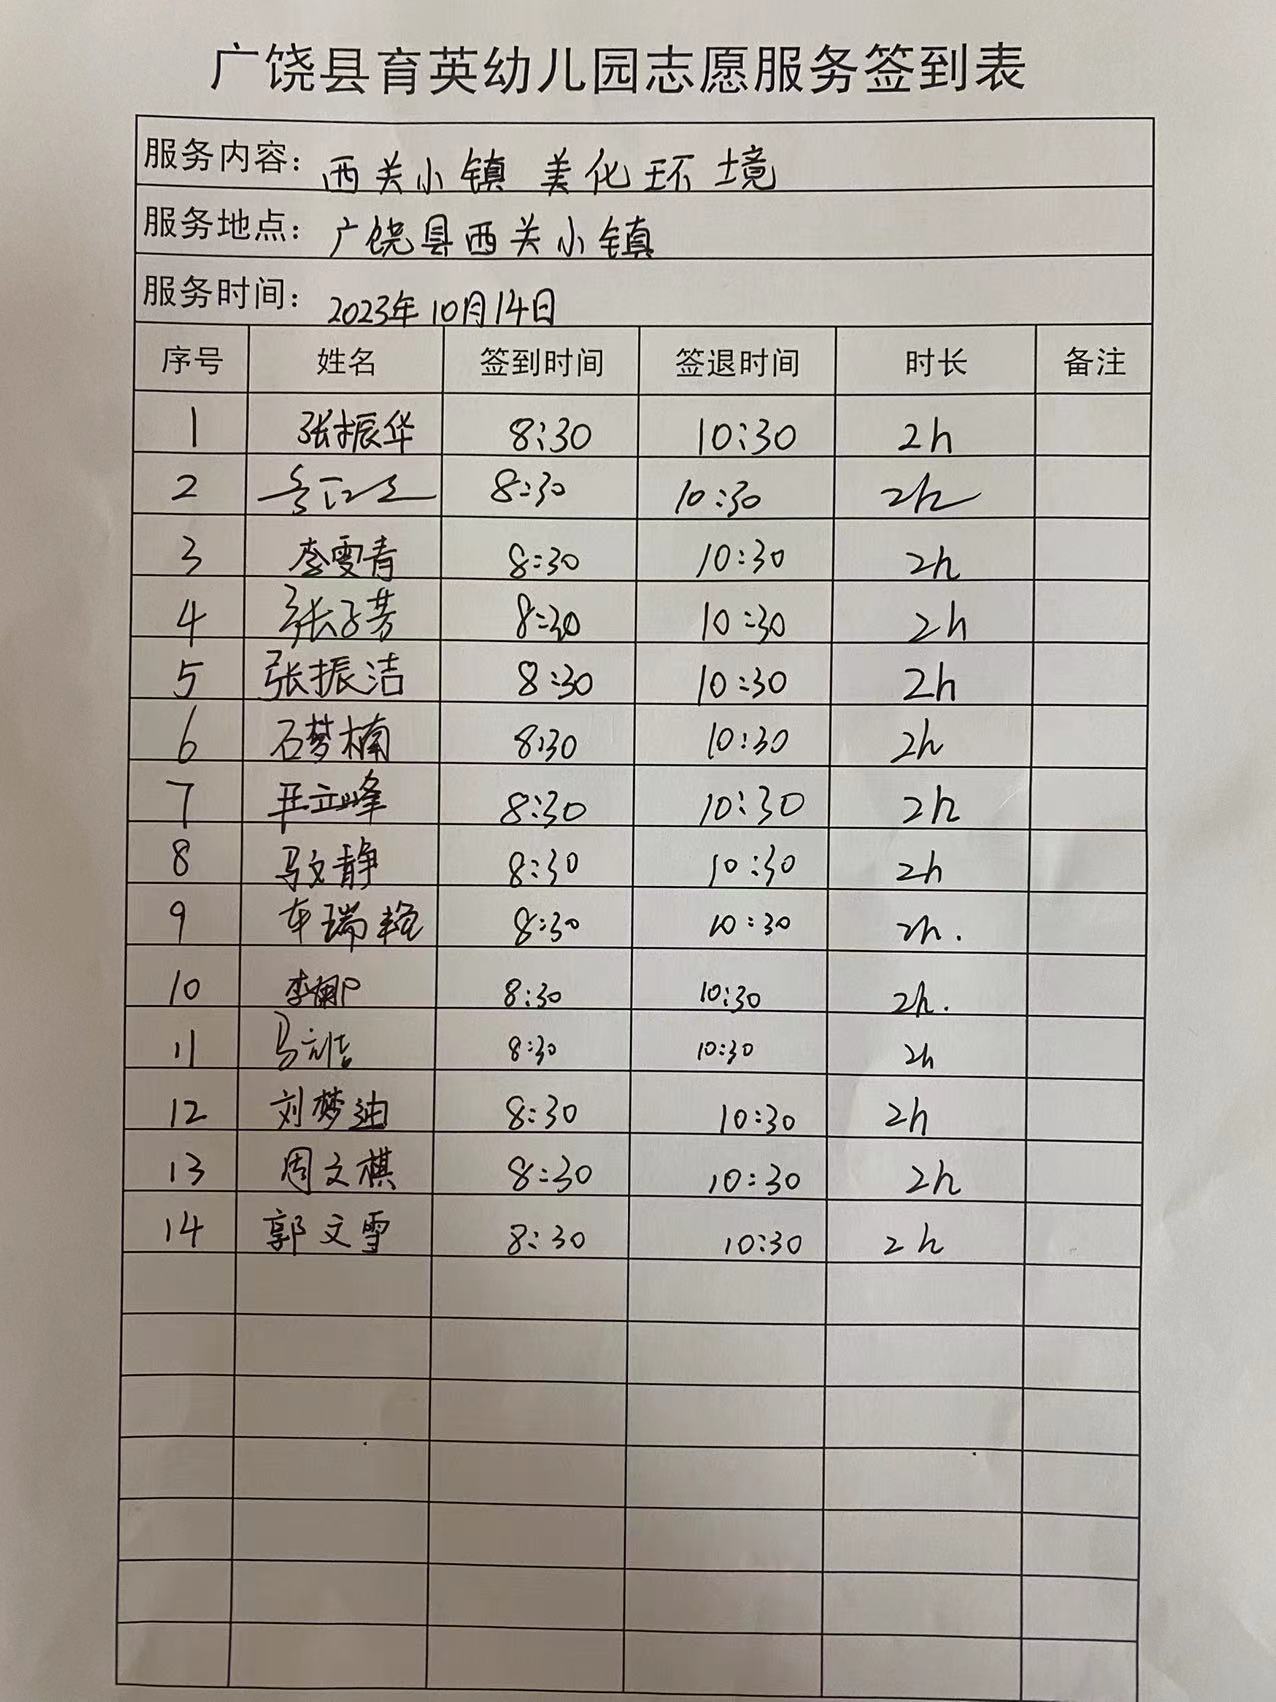 广饶县育英幼儿园志愿服务签到表
服务内容：西关小镇 美化环境
服务地点：广饶县西关小镇
服务时间：2023年10月14日
序号 姓名 签到时间 签退时间 时长 备注
1 张振华 8:30 10:30 2h
2 8:30 10:30 2h
3 李雯青 8:30 10:30 2h
4 张子芳 8:30 10:30 2h
5 张振洁 8:30 10:30 2h
6 石梦楠 8:30 10:30 2h
7 王立峰 8:30 10:30 2h
8 马文静 8:30 10:30 2h
9 车瑞艳 8:30 10:30 2h.
10 李娜 8:30 10:30 2h.
11 马 8:30 10:30 2h
12 刘梦迪 8:30 10:30 2h
13 周文棋 8:30 10:30 2h
14 郭文雪 8:30 10:30 2h